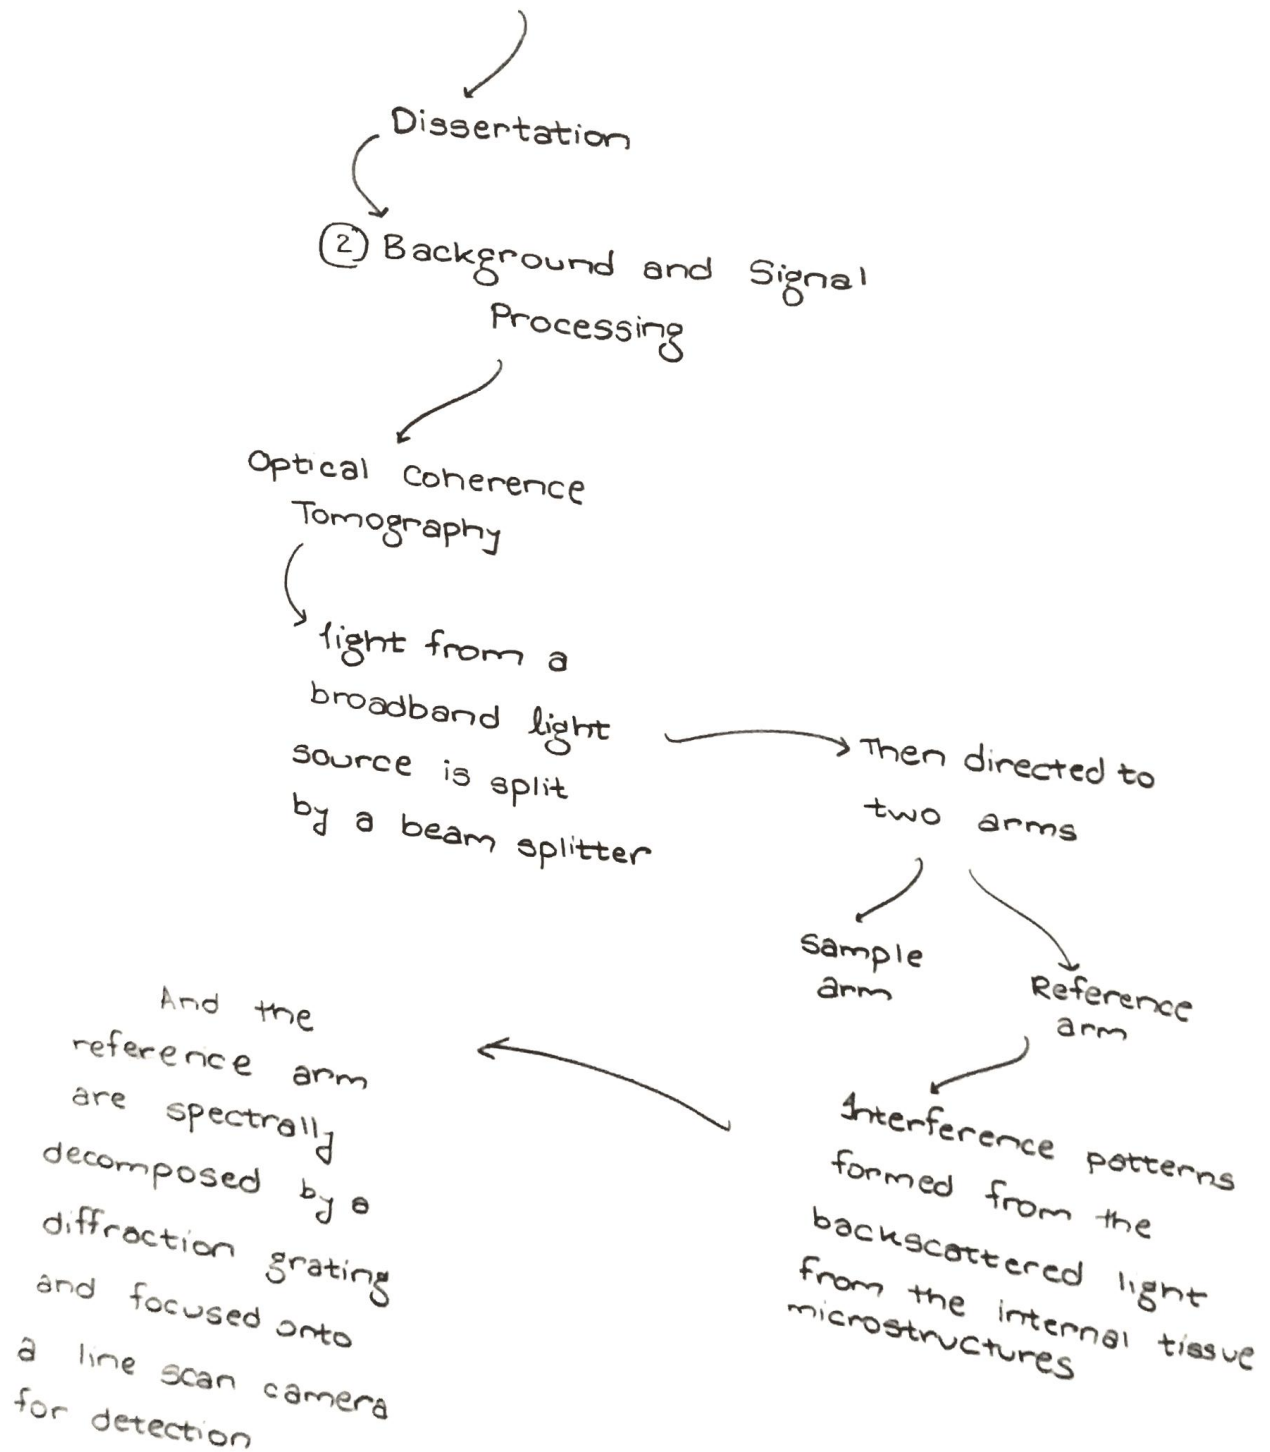 Dissertation
② Background and Signal
Processing
Optical Coherence
Tomography
light from a
broadband light
source is split
by a beam splitter
Then directed to
two arms
Sample
arm
Reference
arm
Interference patterns
formed from the
backscattered light
from the internal tissue
microstructures
And the
reference arm
are spectrally
decomposed by a
diffraction grating
and focused onto
a line scan camera
for detection